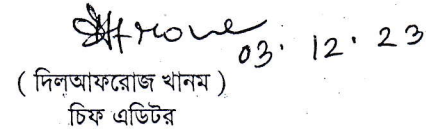 03. 12. 23
( দিলআফরোজ খানম )
চিফ এডিটর